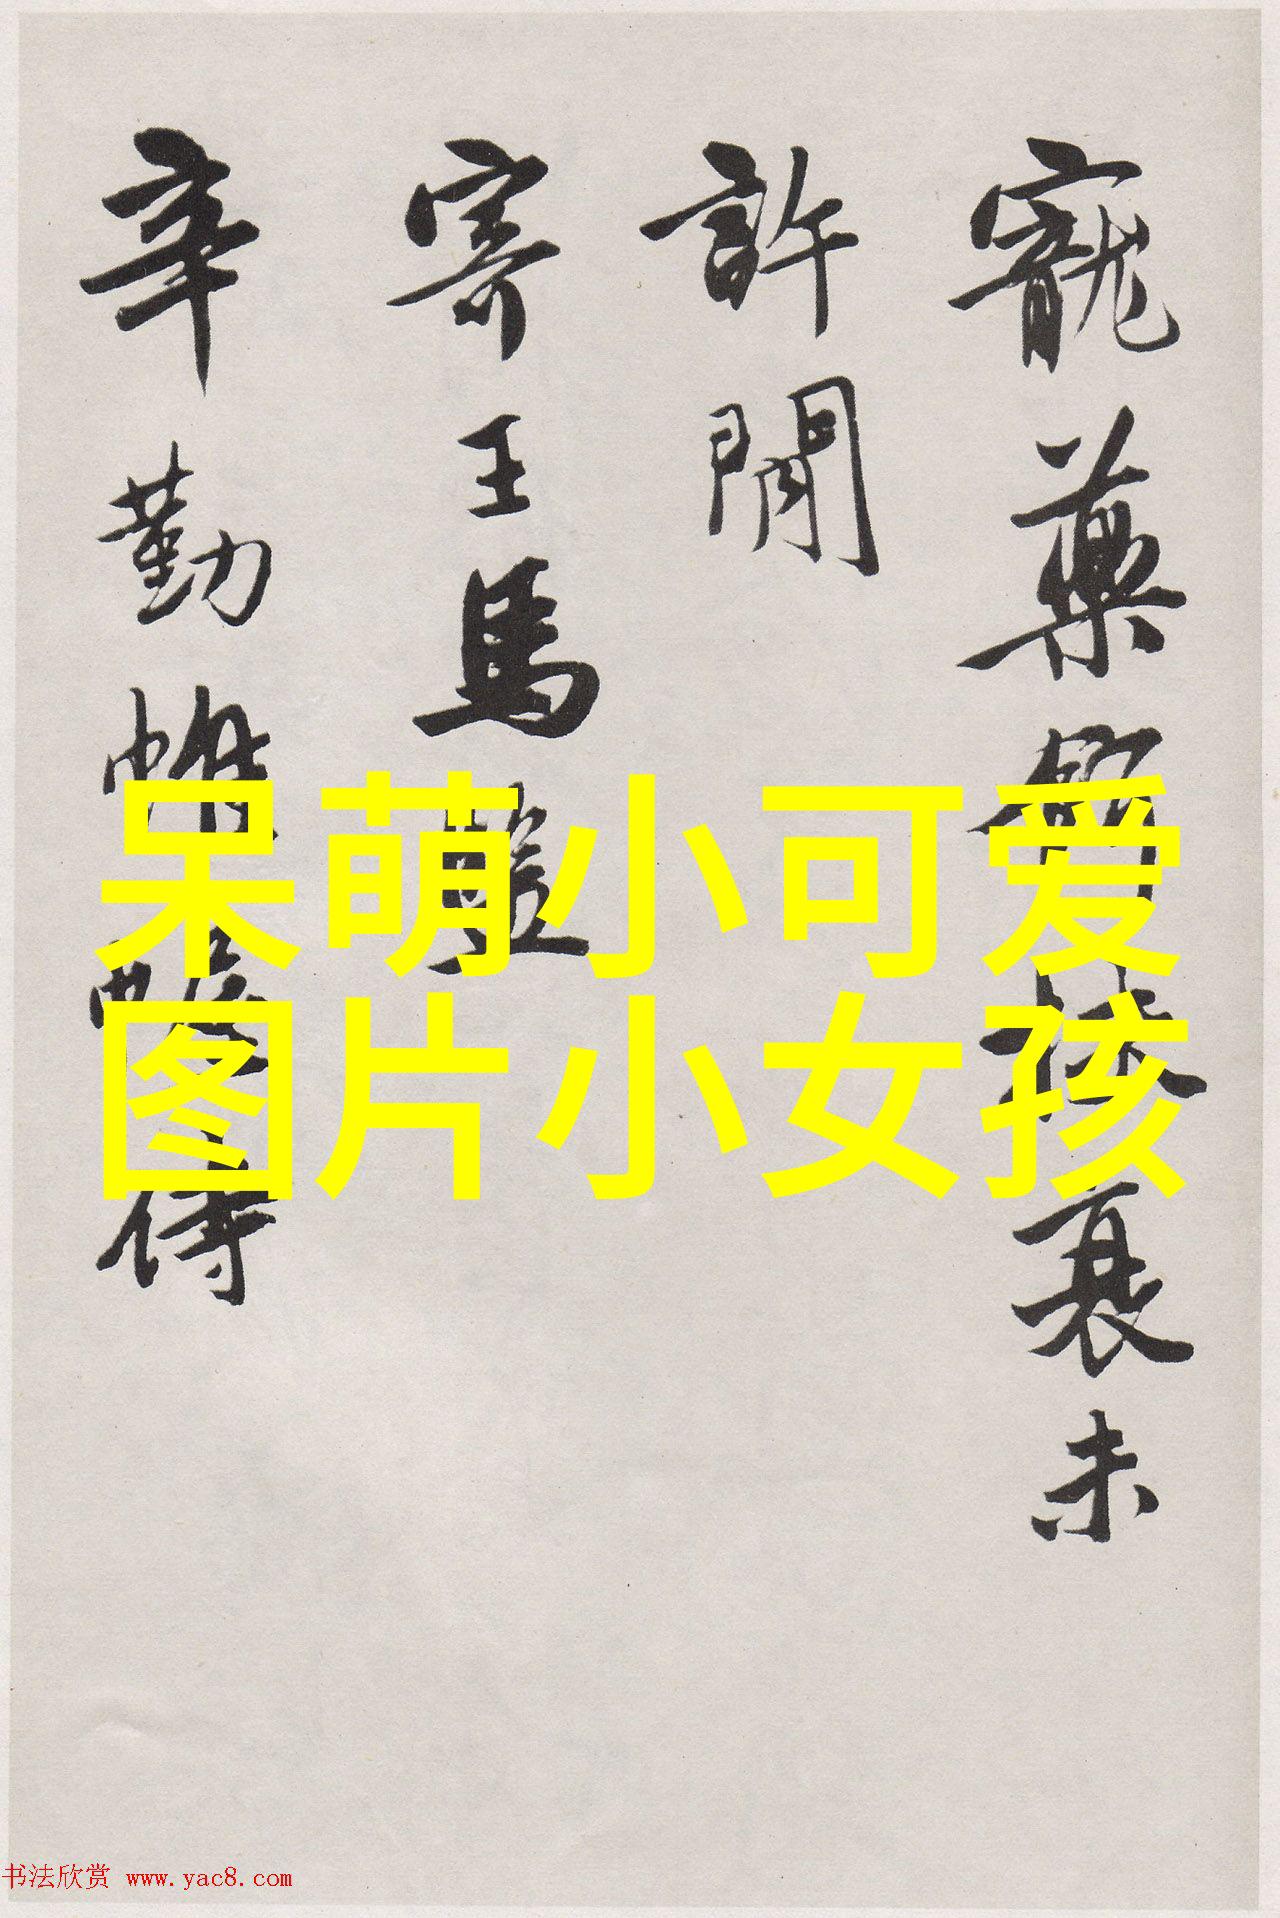 寵藥餌扶衰未
許閒
寄王馬
辛勤帷幄侍
呆萌小可爱
图片小女孩
书法欣赏 www.yac8.com